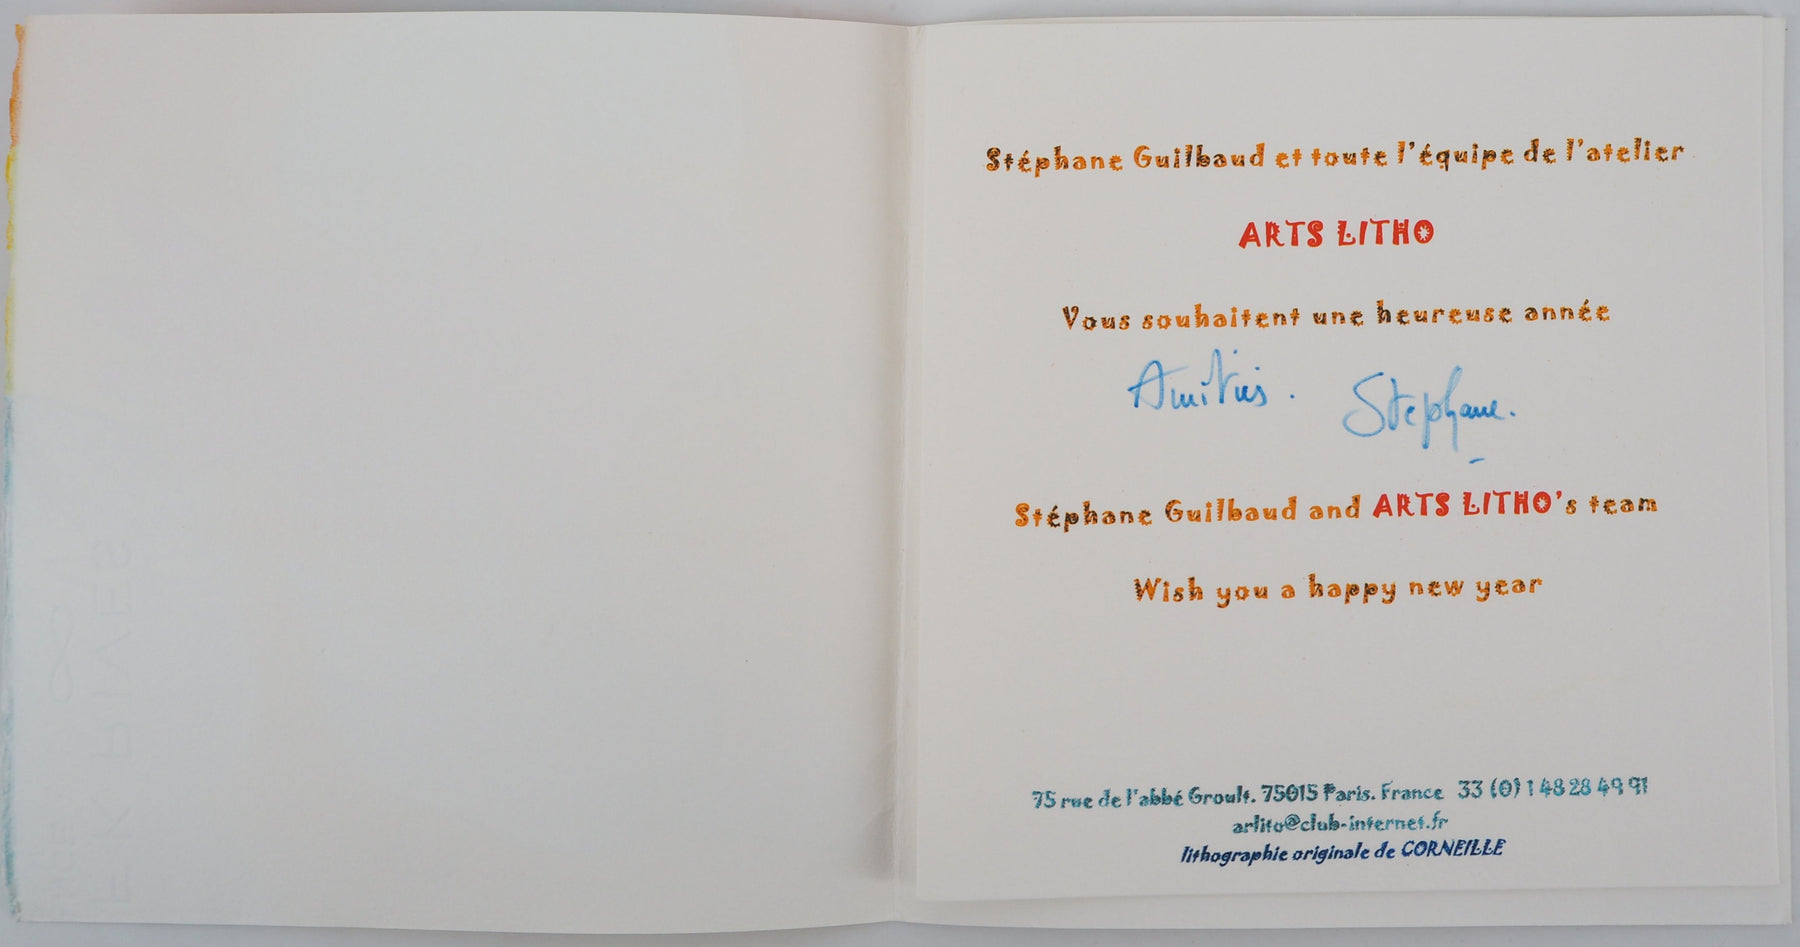 Stéphane Guilbaud et toute l'équipe de l'atelier
ARTS LITHO
Vous souhaitent une heureuse année
Amitiés. Stephane.
Stéphane Guilbaud and ARTS LITHO's team
Wish you a happy new year
75 rue de l'abbé Groult. 75015 Paris. France 33 (0) 1 48 28 49 91
arlito@club-internet.fr
lithographie originale de CORNEILLE